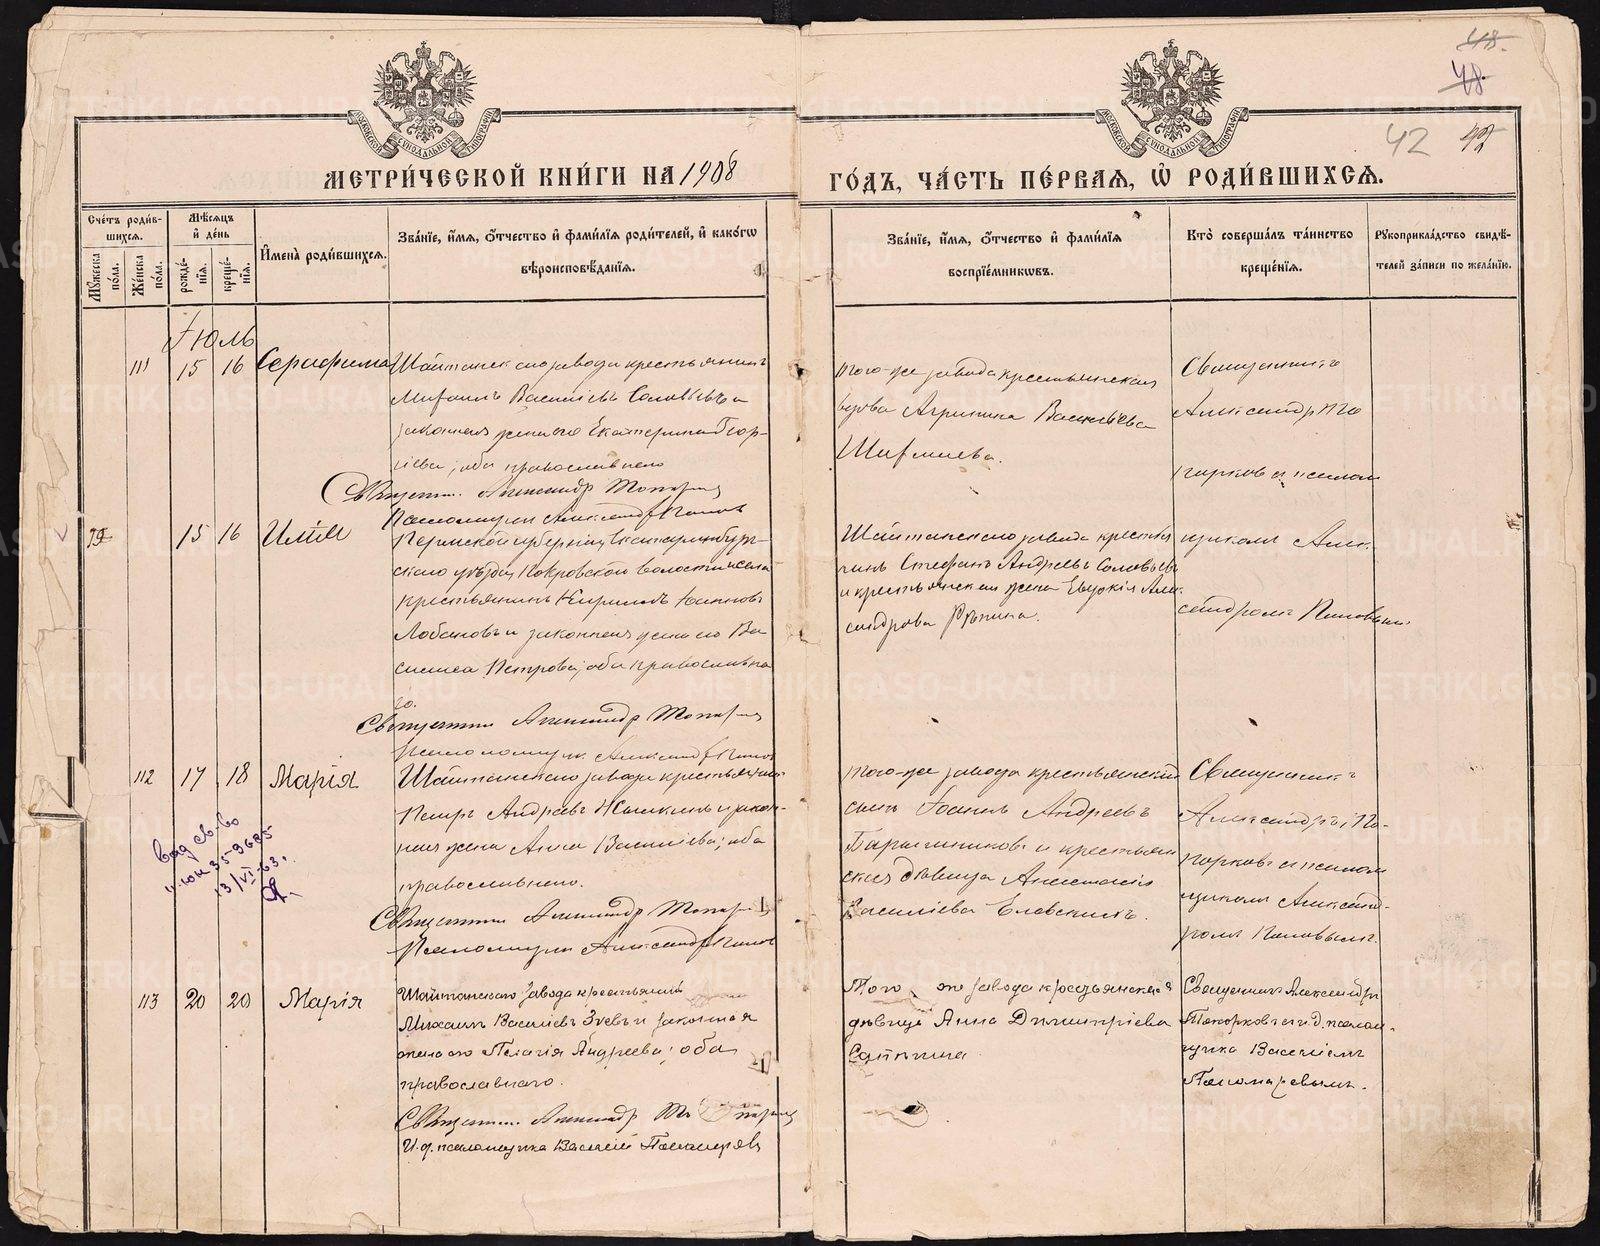 48.
48
42 42
МЕТРИ́ЧЕСКОЙ КНИ́ГИ НА 1908
ГО́ДЪ, ЧА́СТЬ ПЕ́РВАѦ, Ѽ РОДИ́ВШИХСѦ.
Сче́тъ роди́в-
шихсѧ.
Мꙋ́жеска по́ла.
Же́нска по́ла.
Мѣ́сѧцъ и҆ де́нь
рожде́-
нїѧ.
креще́-
нїѧ.
И҆мена̀ роди́вшихсѧ.
Зва́нїе, и҆́мѧ, ѻ҆́тчество и҆ фами́лїѧ роди́телей, и҆ како́гѡ
вѣроисповѣ́данїѧ.
Зва́нїе, и҆́мѧ, ѻ҆́тчество и҆ фами́лїѧ
воспрїе́мникѡвъ.
Кто̀ соверша́лъ та́инство
креще́нїѧ.
Рꙋкоприкла́дство свидѣ́-
телей за́писи по жела́нїю.
Іюль
111 15 16 Серафима
Шайтанскаго завода крестьянинъ
Михаилъ Васильевъ Соловьевъ и
законная жена его Екатерина Геор-
гіева; оба православнаго
Священ. Александръ Топорковъ
Псаломщикъ Александръ Поповъ
того-же завода крестьянская
вдова Агрипина Васильева
Священникъ
Александръ То
порковъ и псалом
15 16 Илія
Пермской губерніи, Екатеринбург-
скаго уѣзда, Покровской волости и села
крестьянинъ Кириллъ Іоанновъ
Лобановъ и законная жена его Ва
силиса Петрова; оба православна
го.
Священникъ Александръ Топорковъ
Псаломщикъ Александръ Поповъ
Шайтанскаго завода крестья
нинъ Стефанъ Андреевъ Соловьевъ
и крестьянская жена Евдокія Алек
сандрова Рѣпина.
щикомъ Алек-
сандромъ Поповымъ.
112 17 18 Марія
Шайтанскаго завода крестьянинъ
Петръ Андреевъ и закон-
ная жена Анна Васильева; оба
православнаго.
Священникъ Александръ Топорковъ
Псаломщикъ Александръ Поповъ
того-же завода крестьянскій
сынъ Іоаннъ Андреевъ
и крестьян
ская дѣвица Анастасія
Васильева
Священникъ
Александръ То-
порковъ и псалом
щикомъ Александ-
ромъ Поповымъ.
Выд св-во
35-9685
13/VI-63.
113 20 20 Марія
Шайтанскаго завода крестьянинъ
Михаилъ Васильевъ Зуевъ и законная
жена его Пелагія Андреева; оба
православнаго.
Священ. Александръ Топорковъ
И. д. псаломщика Василій Пономаревъ
Того же завода крестьянская
дѣвица Анна Димитріева
Священникъ Александръ
Топорковъ и и. д. псалом-
щика Василіемъ
Пономаревымъ.